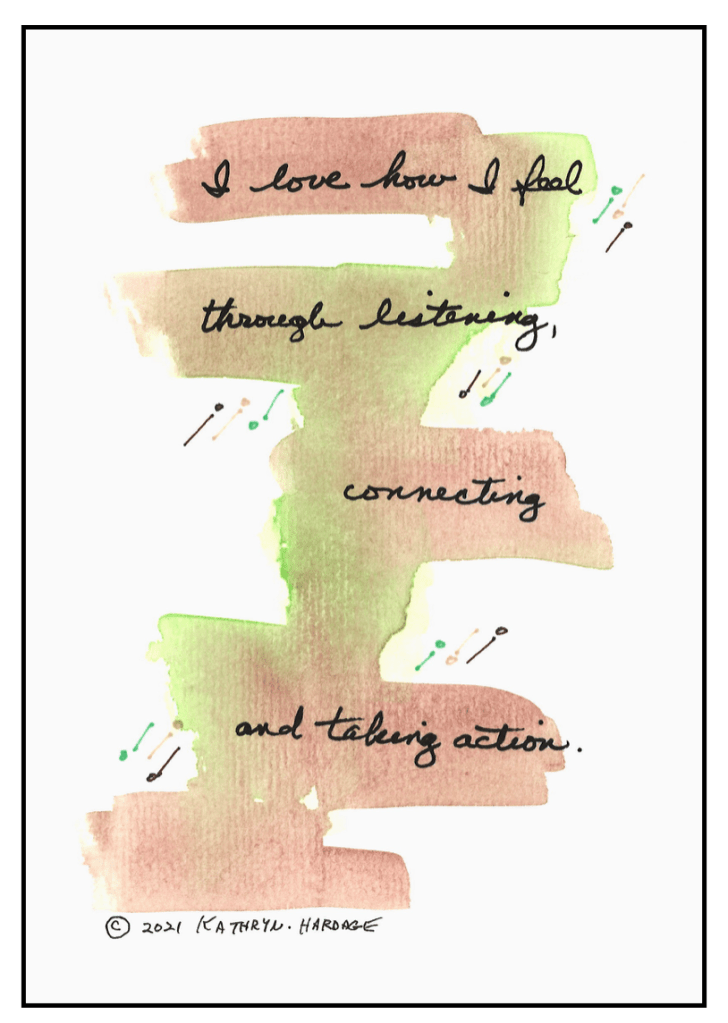 I love how I feel
through listening,
connecting
and taking action.
© 2021 KATHRYN. HARDAGE